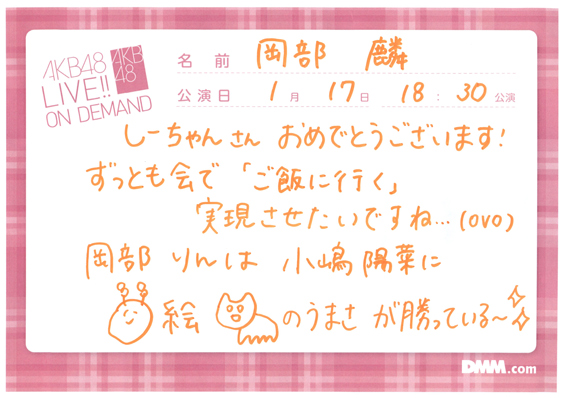 AKB48
LIVE!!
ON DEMAND
AKB
48
名前 岡部 麟
公演日 1月17日 18:30公演
しーちゃんさん おめでとうございます!
ずっとも会で 「ご飯に行く」
実現させたいですね…(OVO)
岡部 りんは 小嶋陽菜に
絵 のうまさ が勝っている〜
DMM.com